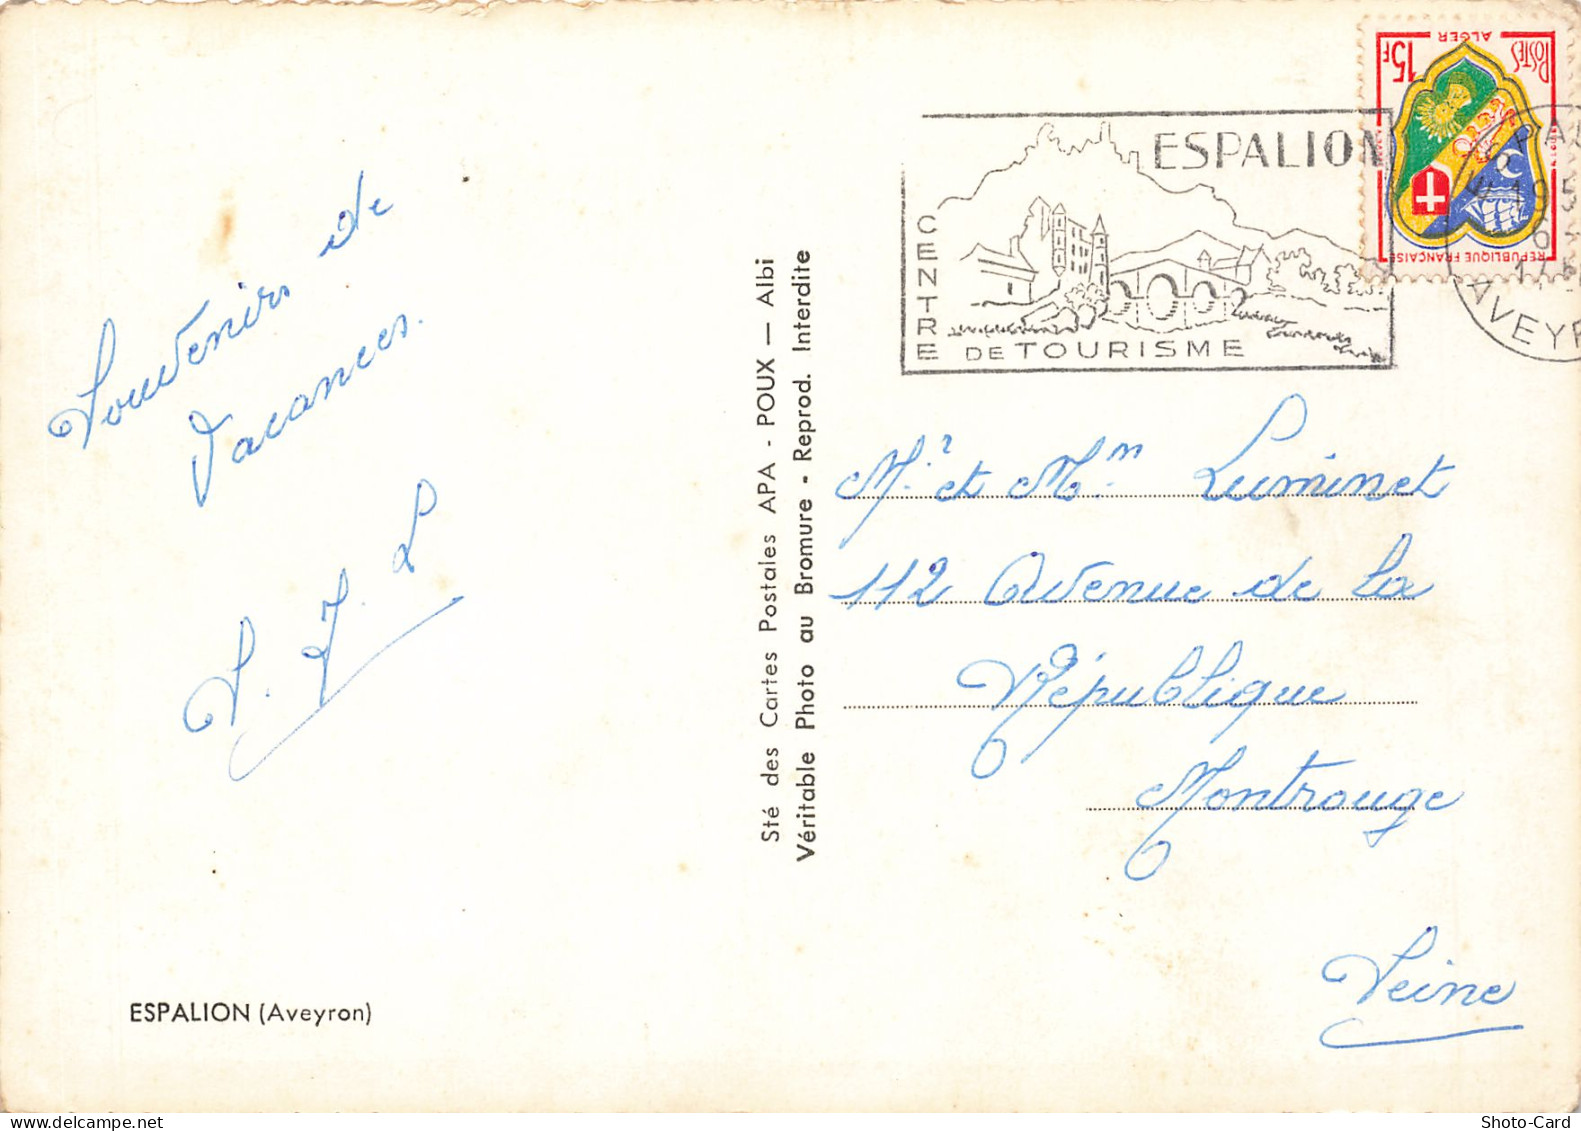 Souvenirs de
Vacances.
S. J. L
ESPALION (Aveyron)
Sté des Cartes Postales APA - POUX — Albi
Véritable Photo au Bromure - Reprod. Interdite
ESPALION
CENTRE
DE TOURISME
POSTES
ALGER
15F
REPUBLIQUE FRANÇAISE
AVEYR
Mr et Mm Luminet
112 Avenue de la
République
Montrouge
Seine
Shoto-Card